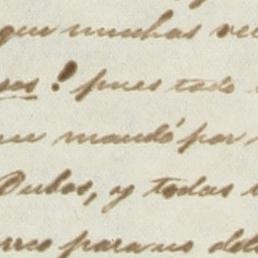 que muchas vec
ses! pues todo
me mandó por
Dubos, y todas
rreo para no de